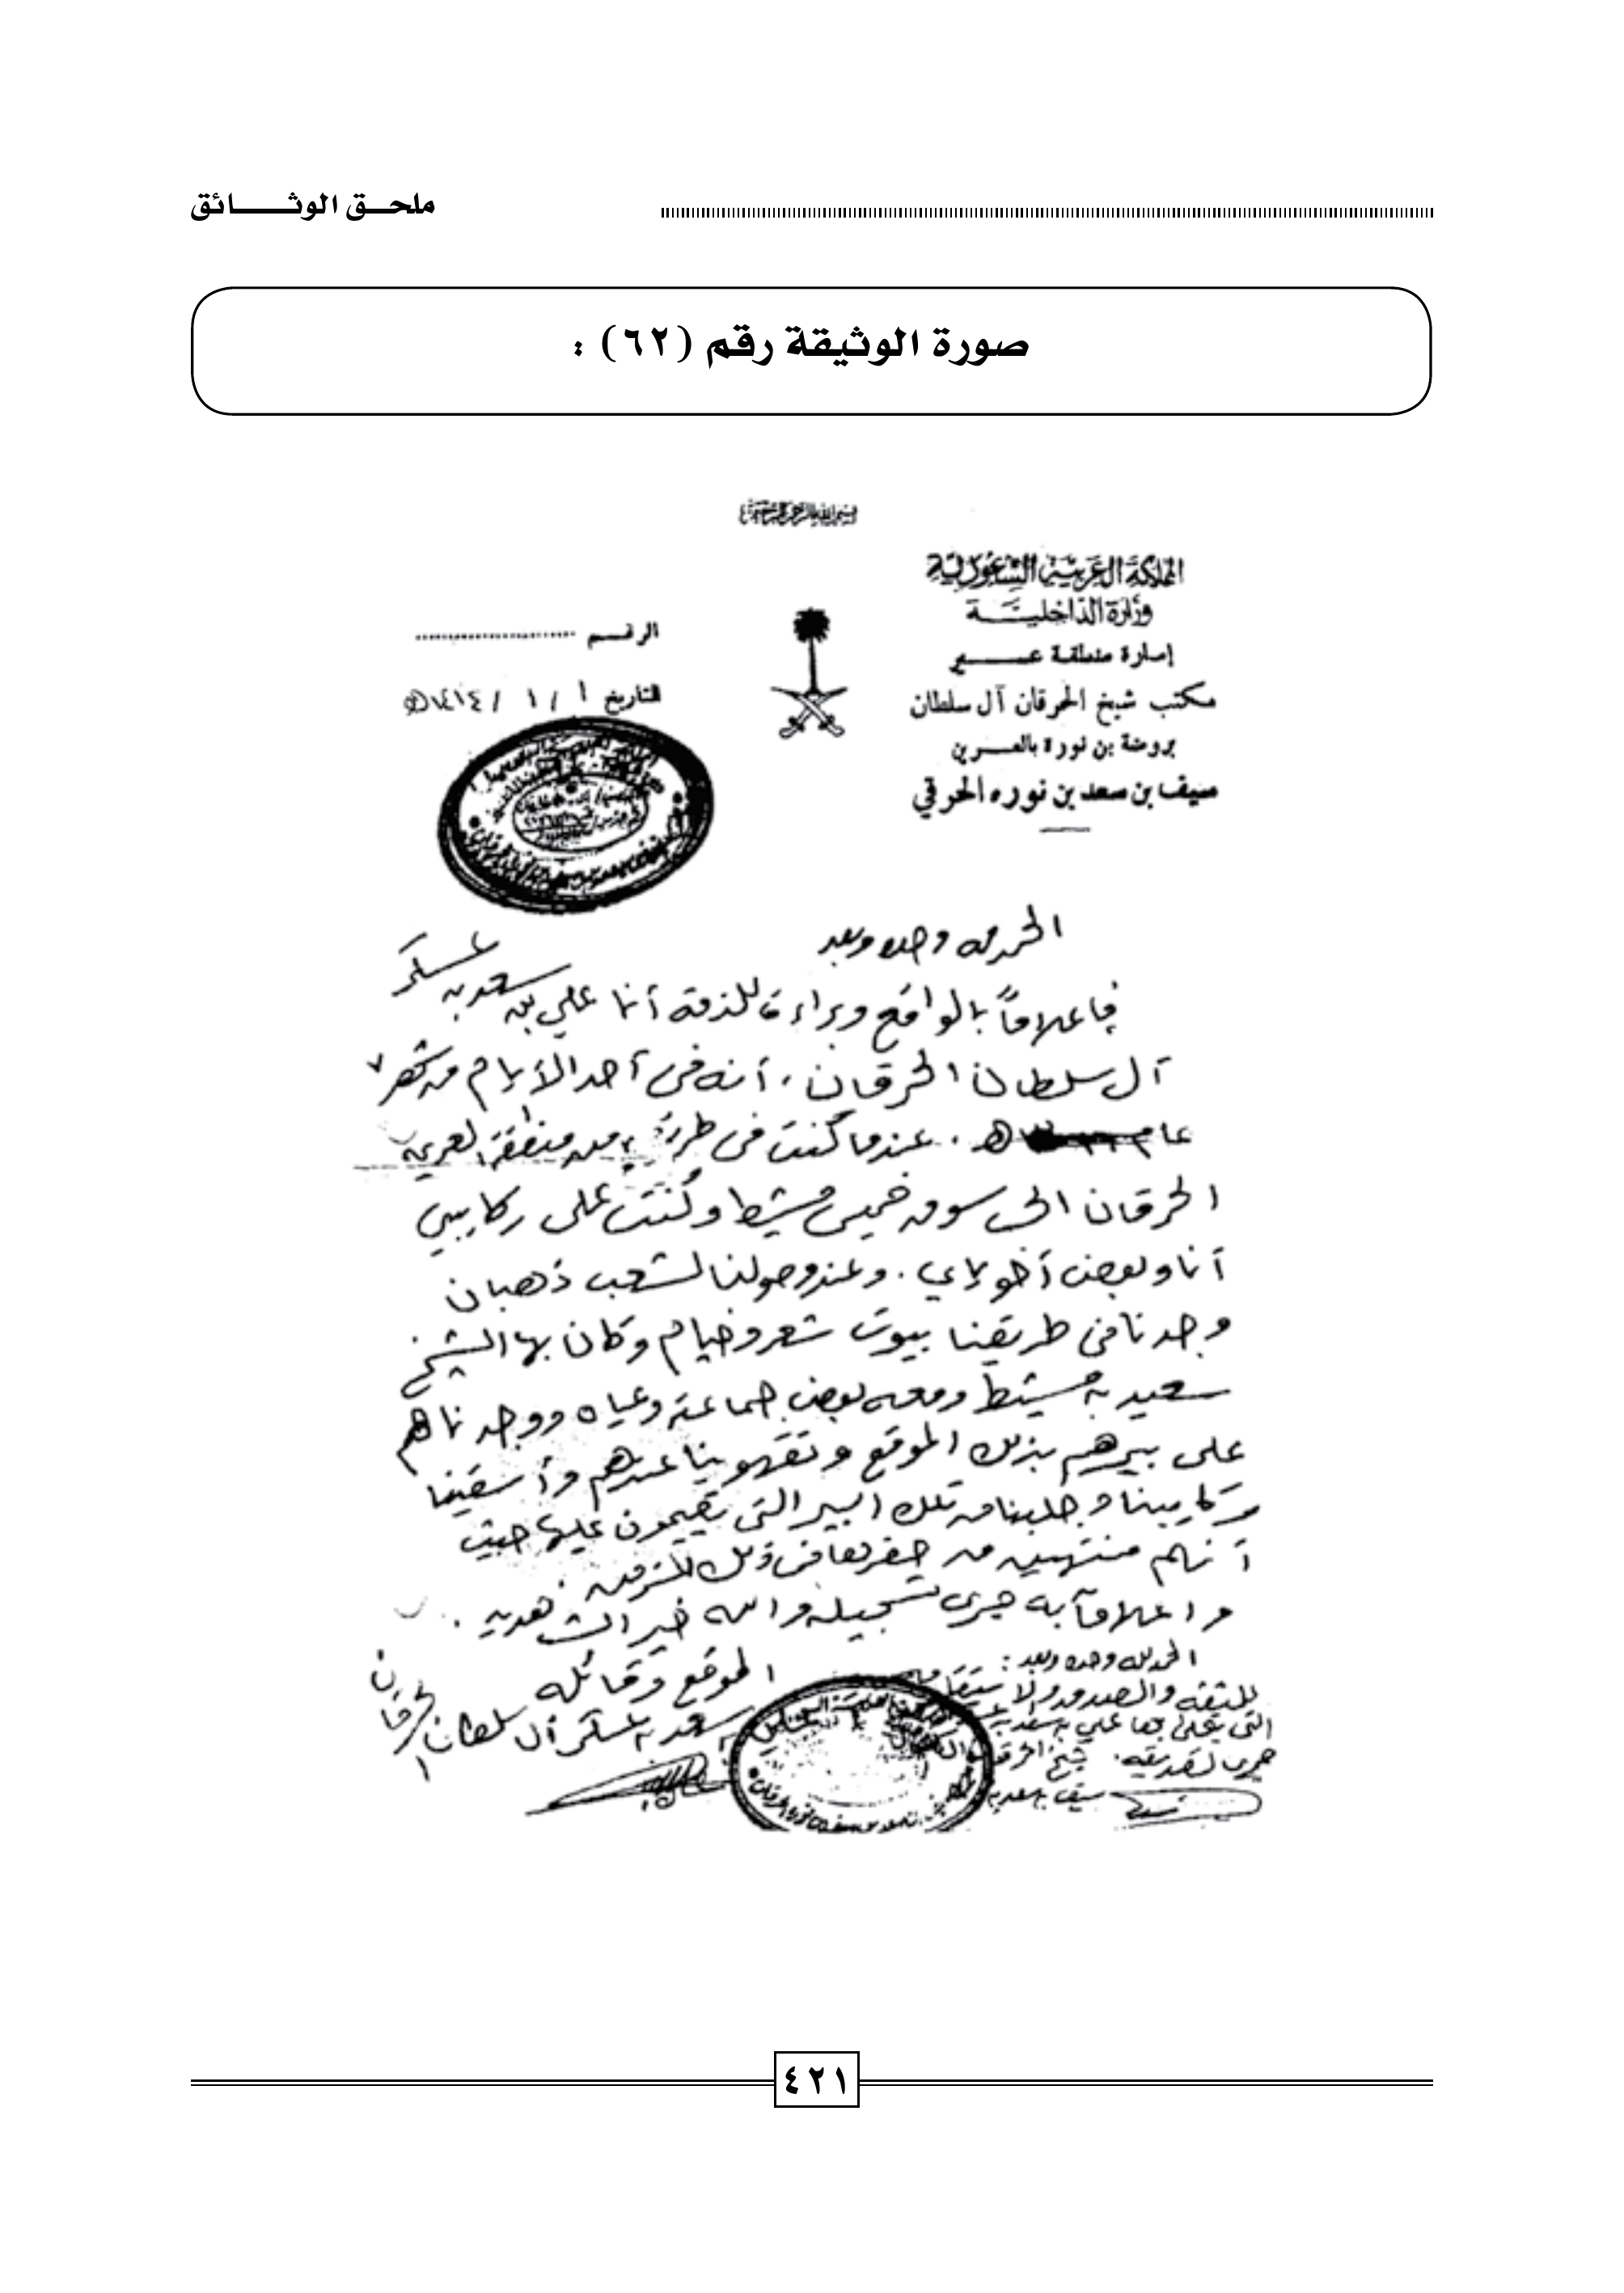 ملحق الوثائق
صورة الوثيقة رقم (٦٢) :
بسم الله الرحمن الرحيم
المملكة العربية السعودية
وزارة الداخلية
إمارة منطقة عسير
مكتب شيخ الحرقان آل سلطان
بروضة بن نورة بالعرين
سيف بن سعد بن نوره الحرقي
الرقم
التاريخ ١ / ١ / ١٤١٤هـ
الحمد لله وحده وبعد
فإعلاماً بالواقع وبراءة للذمة أنا علي بن سعد بن عسكر
آل سلطان الحرقان، أنه في أحد الأيام من شهر
عام هـ . عندما كنت في من منطقة العرين
الحرقان الى سوق خميس مشيط وكنت على ركايبي
أنا وبعض أخولاي . وعند وصولنا لشعب ذهبان
وجدنا في طريقنا بيوت شعر وخيام وكان بها الشيخ
سعيد بن مشيط ومعه بعض جماعته وعياه ووجدناهم
على بيرهم بذلك الموقع وتقهوينا عندهم وأسقينا
ركايبنا وجلبنا من تلك البير التي يقيمون عليها حيث
أنهم منتهين من حفرها في ذلك الزمن
واعلاماً به جرى تسجيله والله خير الشاهدين .
الموقع وقائله
سعد بن عسكر آل سلطان الحرقان
الحمد لله وحده وبعد :
للثقة والصدق والاستقامة
التي يتحلى بها علي بن سعد بن
جرى تصديقه . شيخ الحرقان
سيف بن سعد بن
٤٢١